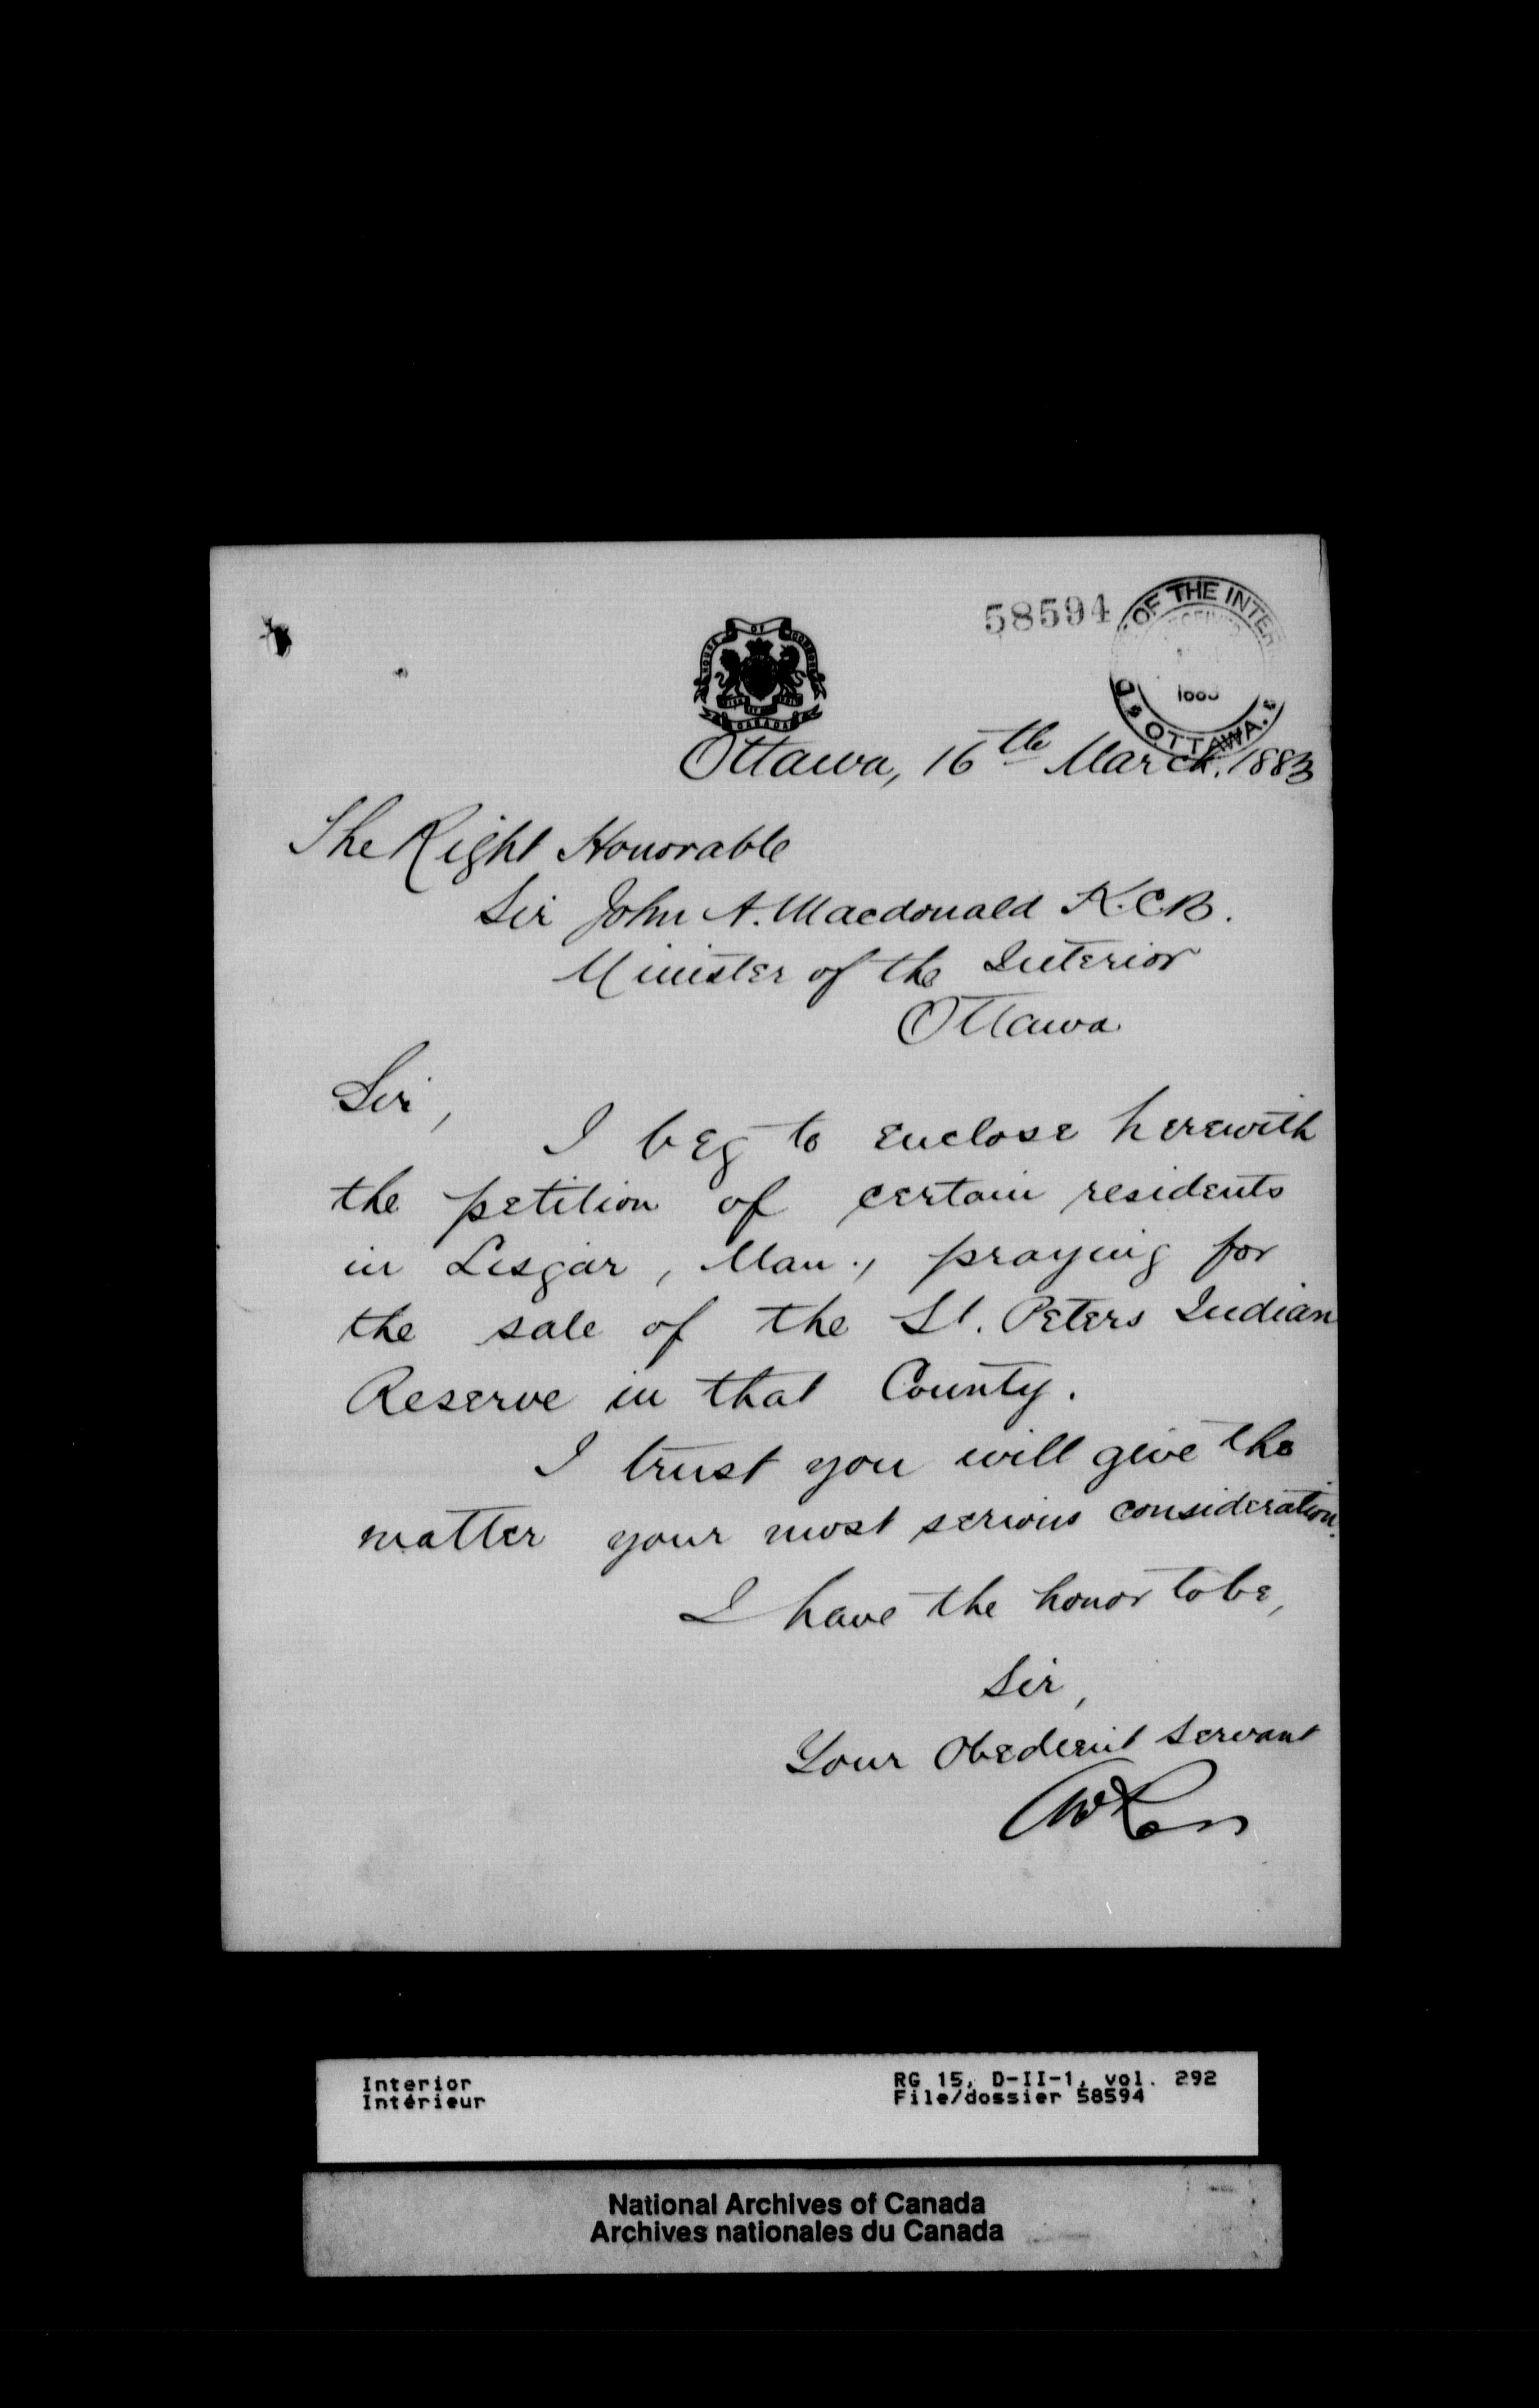 58594
OF THE INTER
1883
OTTAWA.
HOUSE OF COMMONS
CANADA
Ottawa, 16th March. 1883
The Right Honorable
Sir John A. Macdonald K.C.B.
Minister of the Interior
Ottawa
Sir,
I beg to enclose herewith
the petition of certain residents
in Lisgar, Man., praying for
the sale of the St. Peters Indian
Reserve in that County.
I trust you will give the
matter your most serious consideration.
I have the honor to be,
Sir,
Your Obedient Servant
AWRoss
Interior
Intérieur
RG 15, D-II-1, vol. 292
File/dossier 58594
National Archives of Canada
Archives nationales du Canada